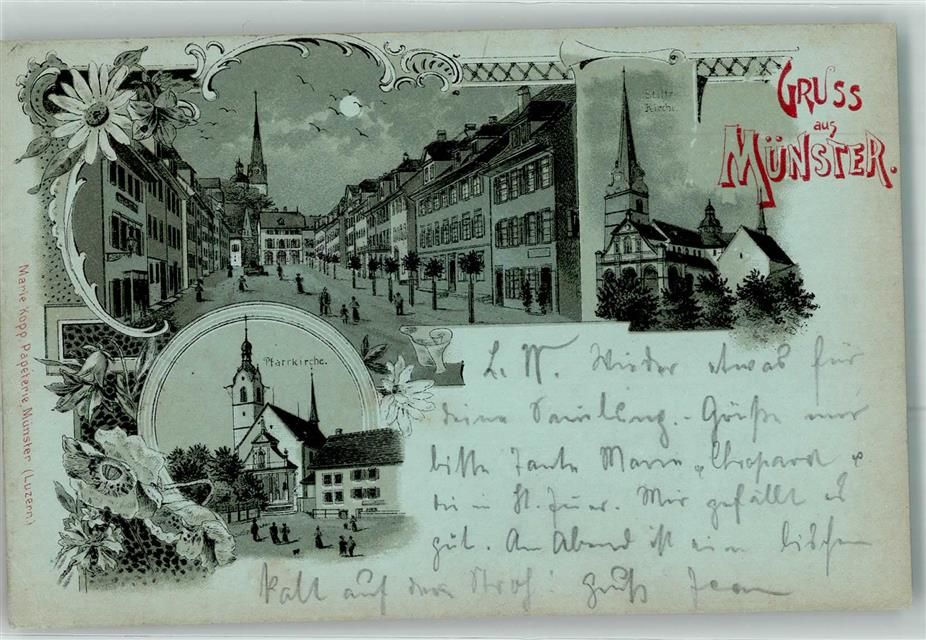 GRUSS
aus
MÜNSTER.
Stifts-
Kirche.
Pfarrkirche.
Marie Kopp, Papeterie, Münster (Luzern)
L. W. Wieder etwas für
deine Sammlung. Grüße mir
bitte Tante Marie &
die in St. Mir gefällt es
gut. Am Abend ist ein bischen
kalt auf dem Stroh! Gruß Jean